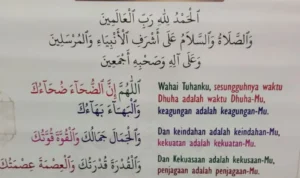 الْحَمْدُ لِلَّهِ رَبِّ الْعَالَمِينَ
وَالصَّلَاةُ وَالسَّلَامُ عَلَى أَشْرَفِ الْأَنْبِيَاءِ وَالْمُرْسَلِينَ
وَعَلَى آلِهِ وَصَحْبِهِ أَجْمَعِينَ
اَللّٰهُمَّ إِنَّ الضُّحَآءَ ضُحَاءُكَ
وَالْبَهَاءَ بَهَاءُكَ
Wahai Tuhanku, sesungguhnya waktu
Dhuha adalah waktu Dhuha-Mu,
keagungan adalah keagungan-Mu.
وَالْجَمَالَ جَمَالُكَ وَالْقُوَّةَ قُوَّتُكَ
Dan keindahan adalah keindahan-Mu,
kekuatan adalah kekuatan-Mu.
وَالْقُدْرَةَ قُدْرَتُكَ وَالْعِصْمَةَ عِصْمَتُكَ
Dan Kekuasaan adalah kekusaan-Mu,
penjagaan adalah penjagaan-Mu.